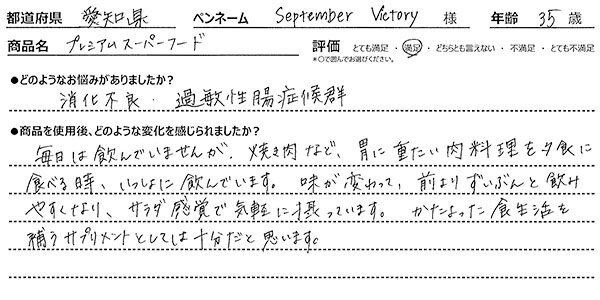 都道府県 愛知県 ペンネーム September Victory 様 年齢 35 歳
商品名 プレミアムスーパーフード 評価 とても満足・満足・どちらとも言えない・不満足・とても不満足
*○で囲んでお選びください。
●どのようなお悩みがありましたか?
消化不良・過敏性腸症候群
●商品を使用後、どのような変化を感じられましたか?
毎日は飲んでいませんが、焼き肉など、胃に重たい肉料理を夕食に
食べる時、いっしょに飲んでいます。味が変わって、前よりずいぶんと飲み
やすくなり、サラダ感覚で気軽に摂っています。かたよった食生活を
補うサプリメントとしては十分だと思います。